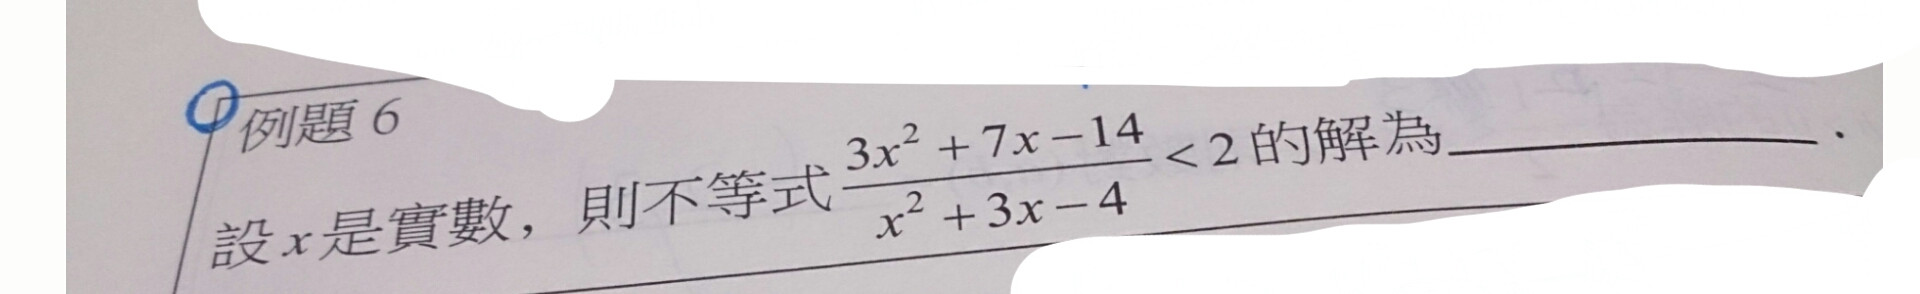 例題 6
設 x 是實數，則不等式 \frac{3x^2+7x-14}{x^2+3x-4}<2 的解為__________.